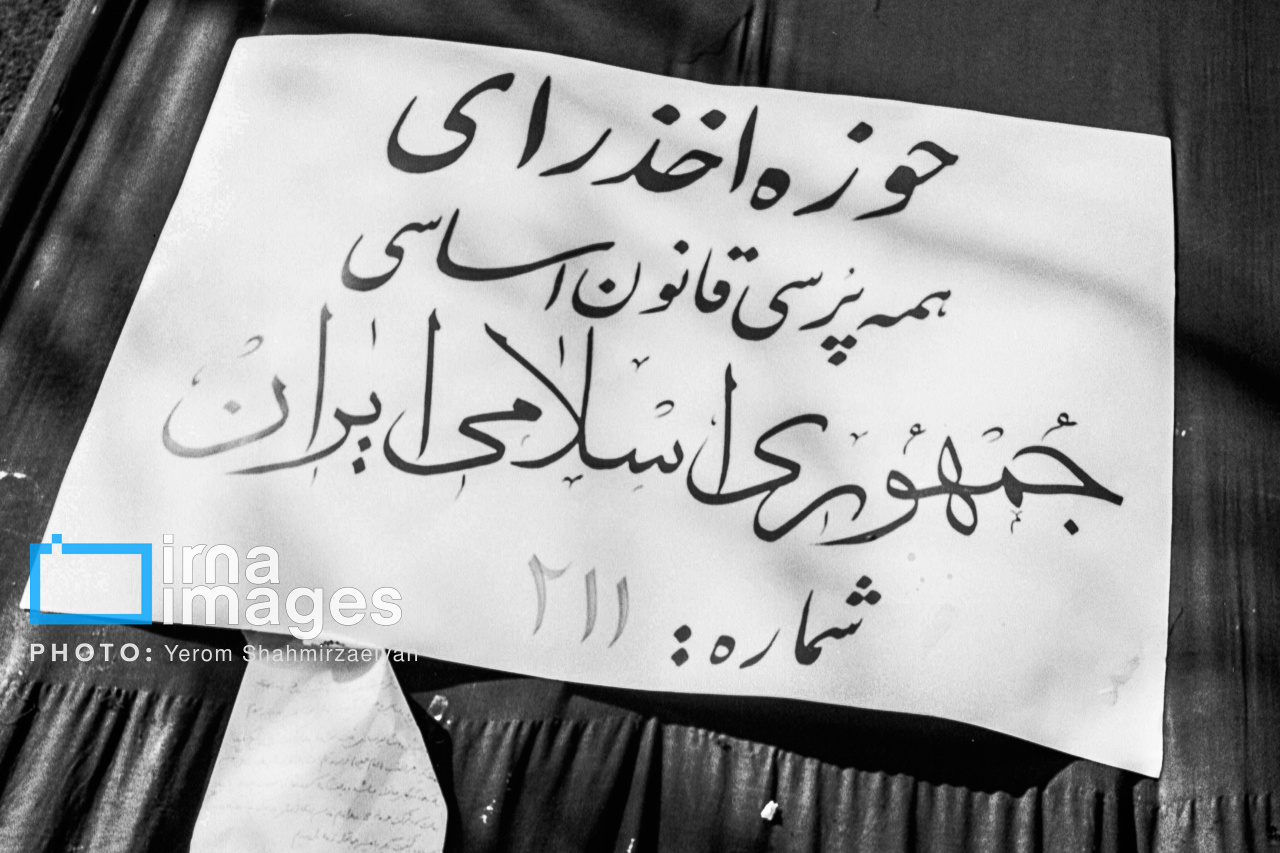 حوزه اخذ رای
همه پُرسی قانون اساسی
جُمهُوری اسلامی ایران
شماره: ۲۱۱
irna
images
PHOTO: Yerom Shahmirzaeiyan